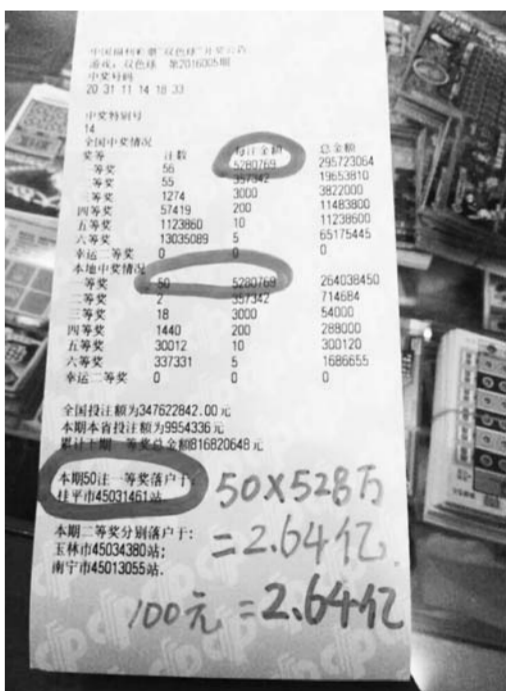 中国福利彩票"双色球"开奖公告
游戏：双色球 第2016005期
中奖号码
20 31 11 14 18 33
中奖特别号
14
全国中奖情况
奖等 注数 每注金额 总金额
一等奖 56 5280769 295723064
二等奖 55 357342 19653810
三等奖 1274 3000 3822000
四等奖 57419 200 11483800
五等奖 1123860 10 11238600
六等奖 13035089 5 65175445
幸运二等奖 0 0 0
本地中奖情况
一等奖 50 5280769 264038450
二等奖 2 357342 714684
三等奖 18 3000 54000
四等奖 1440 200 288000
五等奖 30012 10 300120
六等奖 337331 5 1686655
幸运二等奖 0 0 0
全国投注额为347622842.00元
本期本省投注额为9954336元
累计上期一等奖总金额816820648元
本期50注一等奖落户于:
桂平市45031461站.
50X528万
=2.64亿.
本期二等奖分别落户于:
玉林市45034380站;
南宁市45013055站.
100元=2.64亿